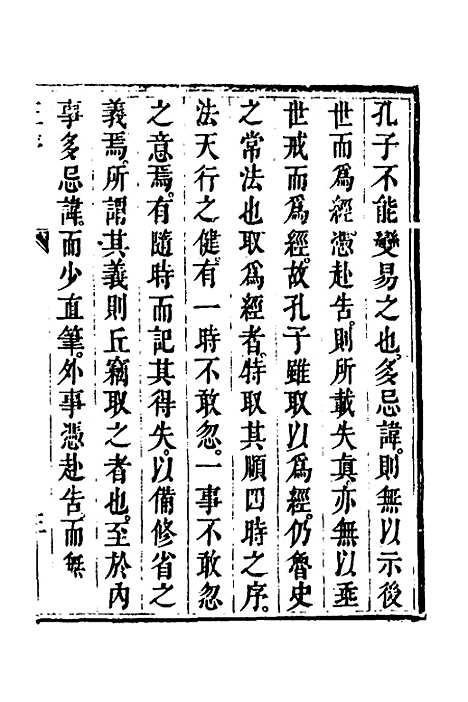 孔子不能變易之也。多忌諱。則無以示後
世而爲經。憑赴告。則所載失真。亦無以垂
世戒而爲經。故孔子雖取以爲經。仍魯史
之常法也。取爲經者。特取其順四時之序。
法天行之健。有一時不敢忽。一事不敢忽
之意焉。有隨時而記其得失。以備修省之
義焉。所謂其義則丘竊取之者也。至於內
事多忌諱。而少直筆。外事憑赴告。而無
三